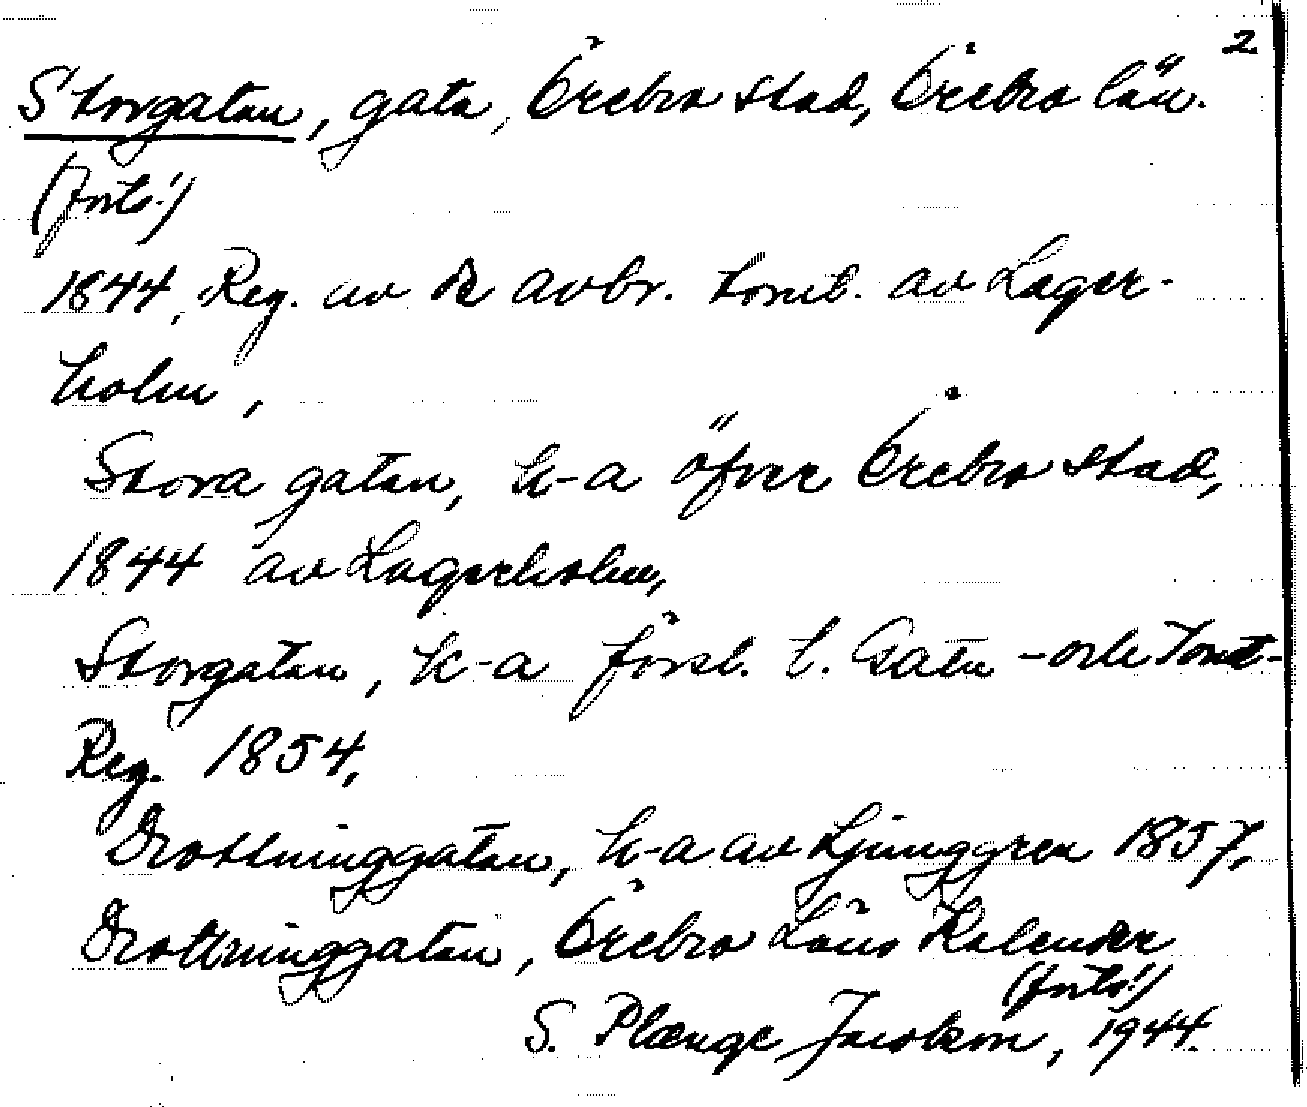 2
Storgatan, gata, Örebro stad, Örebro län.
(forts!)
1844, Reg. av avbr. tomt. av Lager-
holm,
Stora gatan, k-a öfver Örebro stad,
1844 av Lagerholm,
Storgatan, k-a försl. t. Gatu - och Tomt-
Reg. 1854,
Drottninggatan, k-a av Ljunggren 1857,
Drottninggatan, Örebro Läns Kalender
(forts!)
S. Plænge Jacobson, 1944.